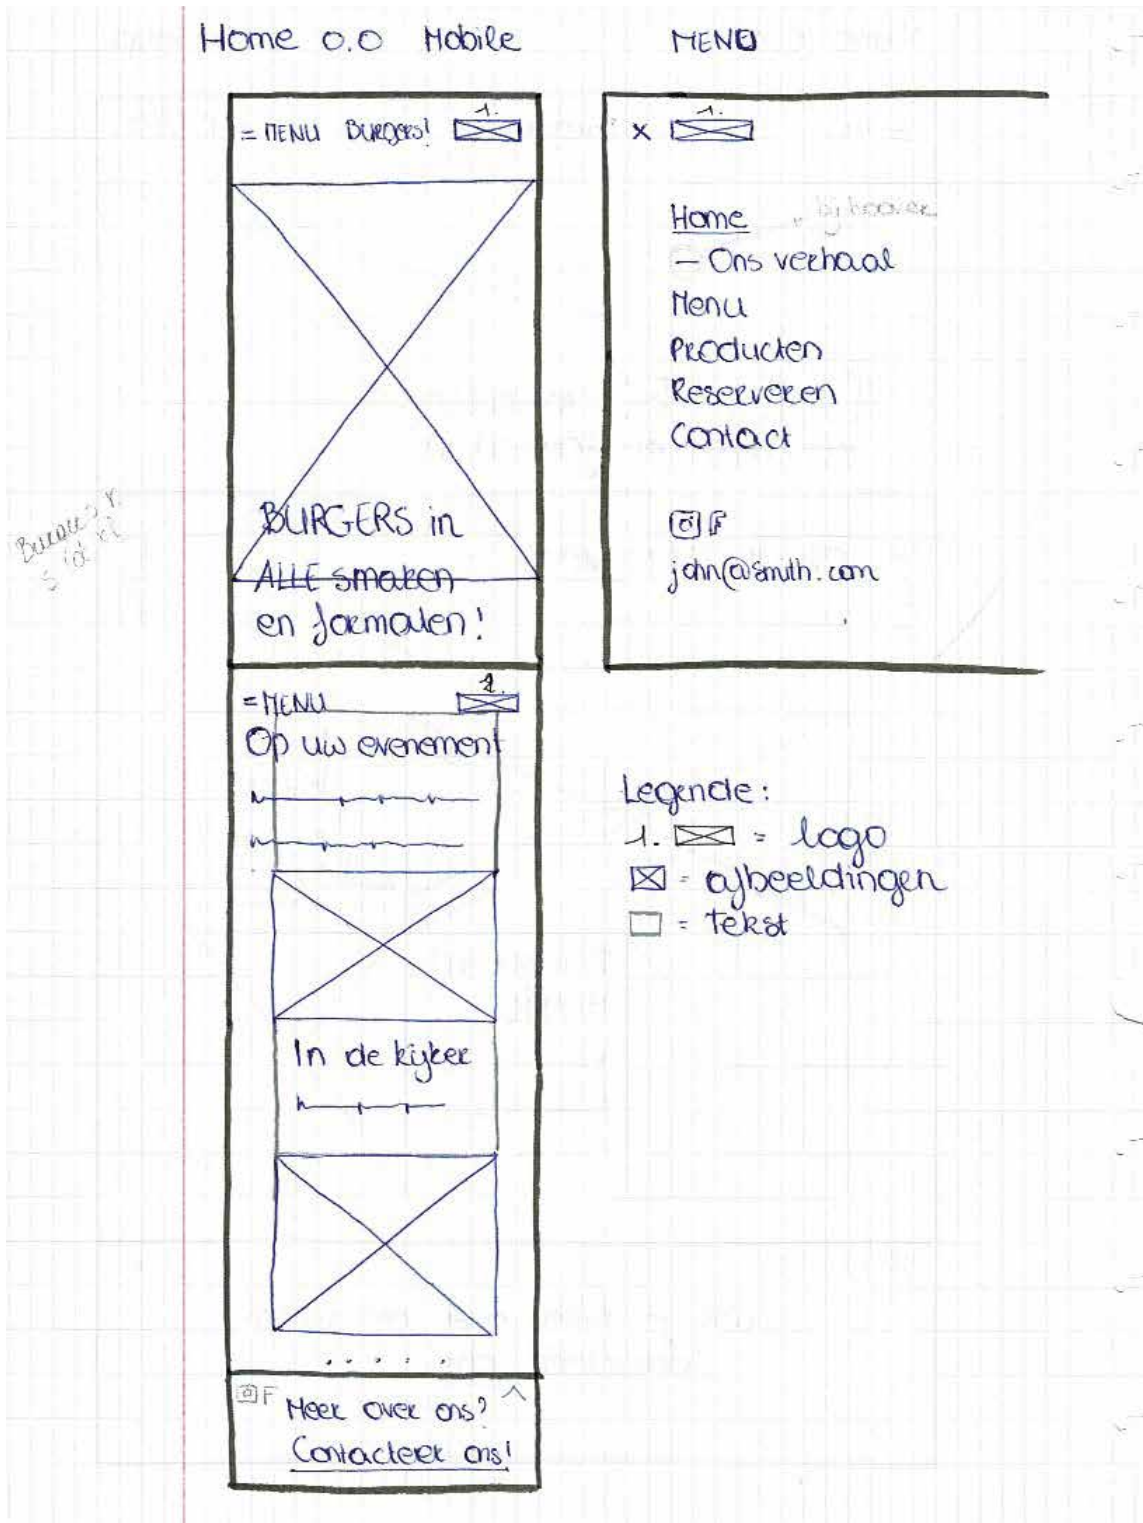 Home 0.0 Mobile
MENU
= MENU Burgers! 1.
BURGERS in
ALLE smaken
en formaten!
= MENU 1.
Op uw evenement
In de kijker
.....
F Meer over ons? ^
Contacteer ons!
x 1.
Home bij hoover
– Ons verhaal
Menu
Producten
Reserveren
Contact
F
john@smith.com
Legende:
1. = logo
= afbeeldingen
= Tekst